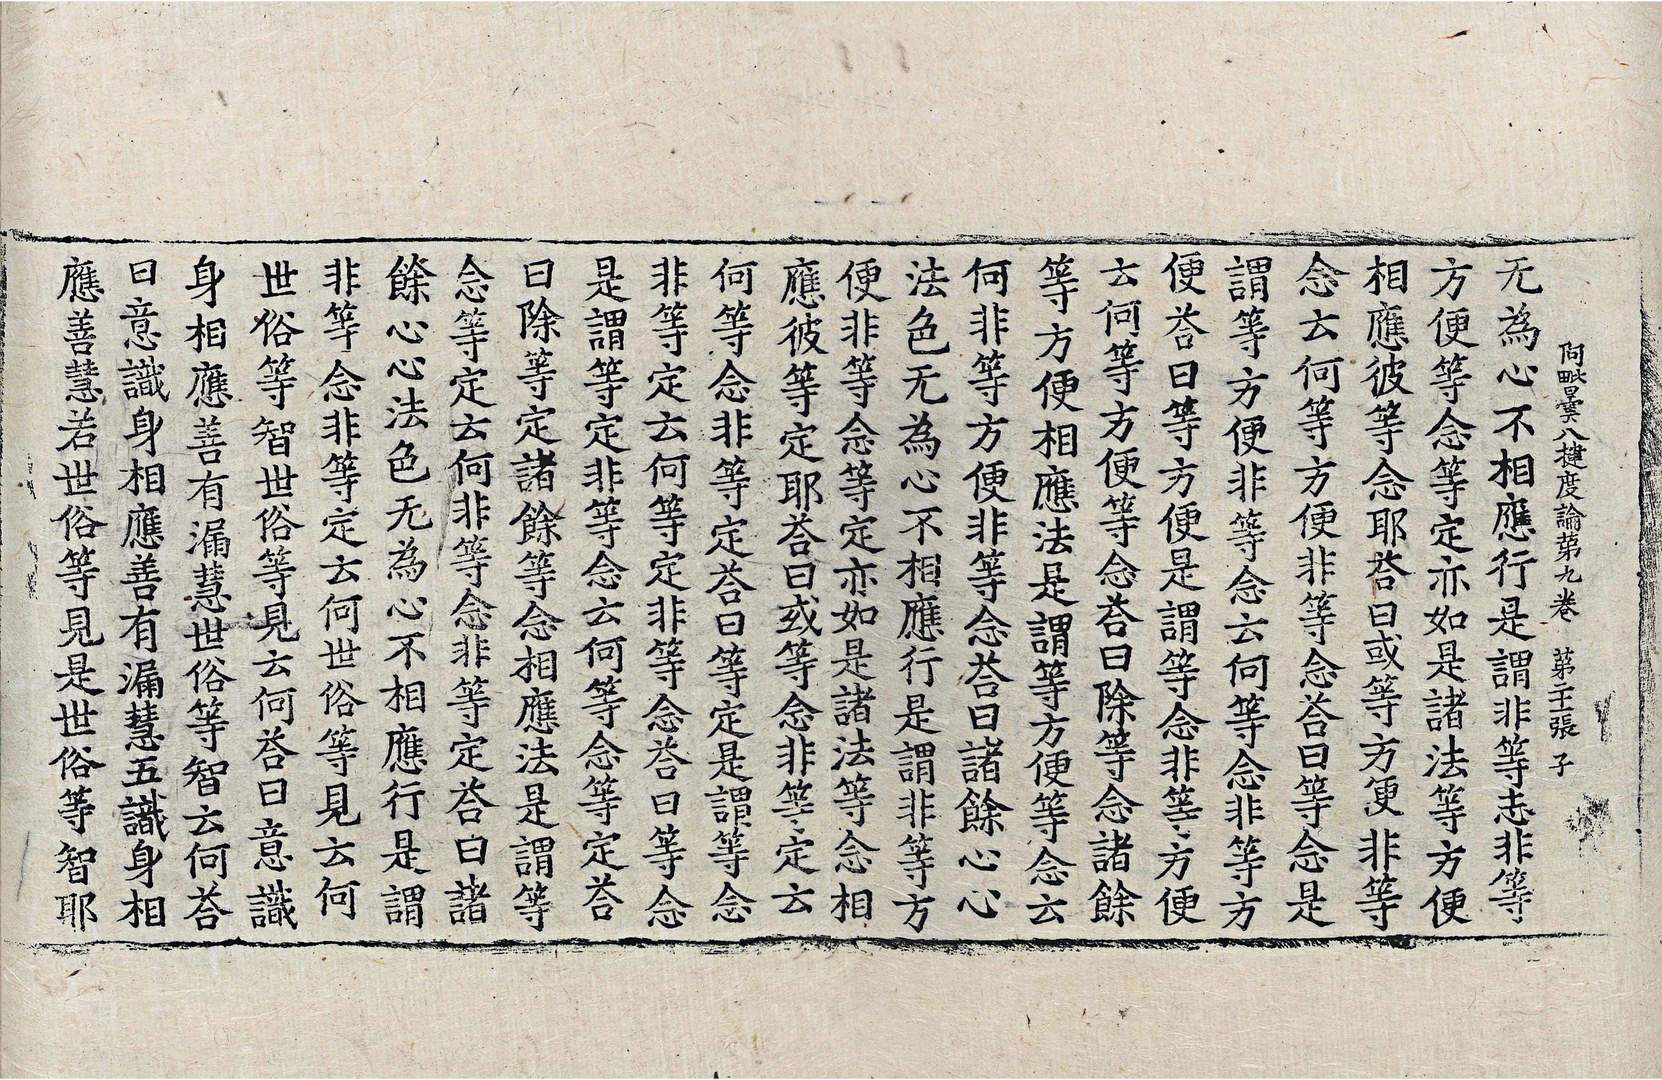 阿毗曇八揵度論苐九卷　苐二十張　子
无為心不相應行是謂非等志非等
方便等念等定亦如是諸法等方便
相應彼等念耶荅曰或等方便非等
念云何等方便非等念荅曰等念是
謂等方便非等念云何等念非等方
便荅曰等方便是謂等念非等方便
云何等方便等念荅曰除等念諸餘
等方便相應法是謂等方便等念云
何非等方便非等念荅曰諸餘心心
法色无為心不相應行是謂非等方
便非等念等定亦如是諸法等念相
應彼等定耶荅曰或等念非等定云
何等念非等定荅曰等定是謂等念
非等定云何等定非等念荅曰等念
是謂等定非等念云何等念等定荅
曰除等定諸餘等念相應法是謂等
念等定云何非等念非等定荅曰諸
餘心心法色无為心不相應行是謂
非等念非等定云何世俗等見云何
世俗等智世俗等見云何荅曰意識
身相應善有漏慧世俗等智云何荅
曰意識身相應善有漏慧五識身相
應善慧若世俗等見是世俗等智耶